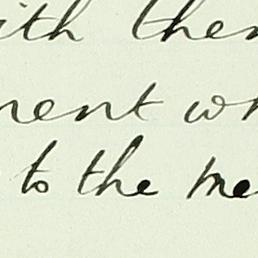 ith them
ment wh
to the me